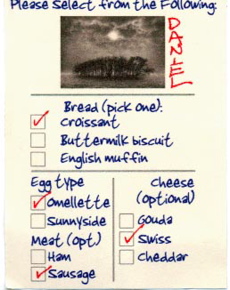 Please Select from the Following:
DANIEL
Bread (pick one):
croissant
Buttermilk biscuit
English muffin
Egg type
Omellette
Sunnyside
Meat (opt.)
Ham
Sausage
Cheese
(optional)
Gouda
Swiss
Cheddar